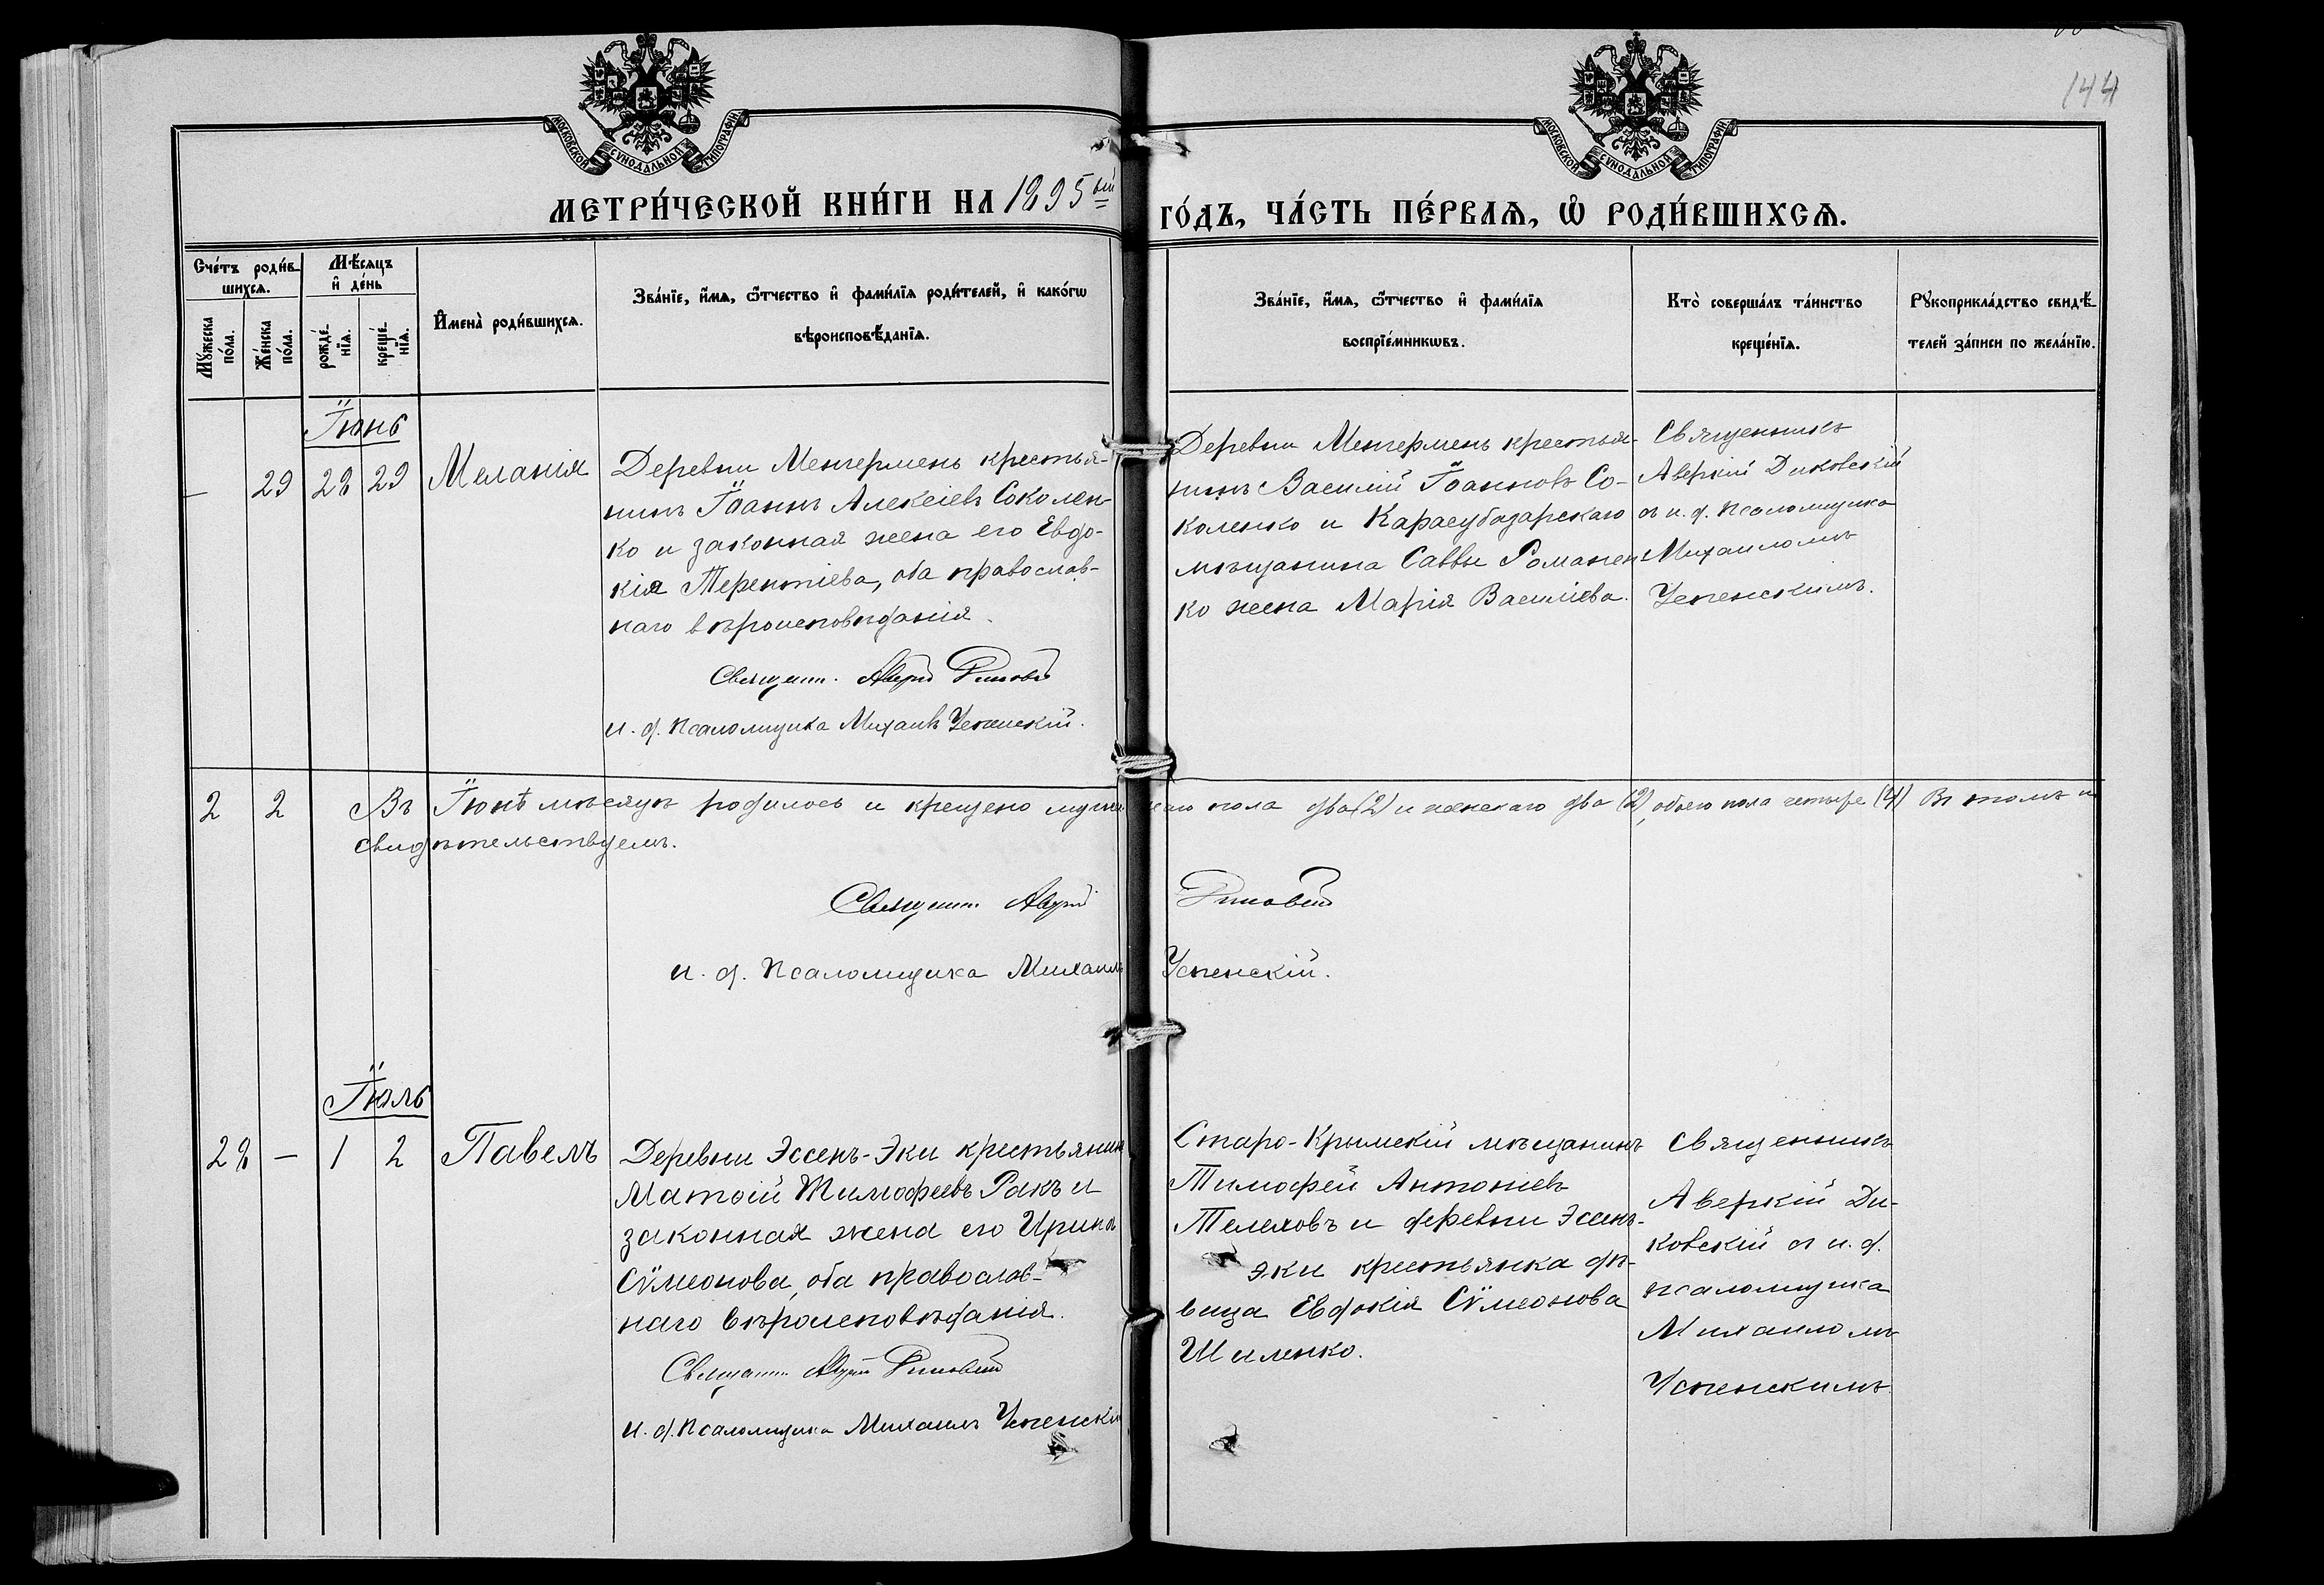 144
МОСКОВСКОЙ СѴНОДАЛЬНОЙ ТИПОГРАФІИ
МОСКОВСКОЙ СѴНОДАЛЬНОЙ ТИПОГРАФІИ
МЕТРИ́ЧЕСКОЙ КНИ́ГИ НА 1895ый
ГО́ДЪ, ЧА́СТЬ ПЕ́РВАѦ, Ѽ РОДИ́ВШИХСѦ.
Сче́тъ роди́в-
шихсѧ.
Мꙋ́жеска
по́ла.
Же́нска
по́ла.
Мѣ́сѧцъ
и҆ де́нь
рожде́-
нїѧ.
креще́-
нїѧ.
И҆мена̀ роди́вшихсѧ.
Зва́нїе, и҆́мѧ, ѻ҆́тчество и҆ фами́лїѧ роди́телей, и҆ како́гѡ
вѣроисповѣ́данїѧ.
Зва́нїе, и҆́мѧ, ѻ҆́тчество и҆ фами́лїѧ
воспрїе́мникѡвъ.
Кто̀ соверша́лъ та́инство
креще́нїѧ.
Рꙋкоприкла́дство свидѣ́-
телей за́писи по жела́нїю.
Іюнь
— 29 28 29 Меланія
Деревни Менгермень крестья-
нинъ Іоаннъ Алексіевъ Соколен-
ко и законная жена его Евдо-
кія Терентіева, оба православ-
наго вѣроисповѣданія.
Священн. Аверкій Диковскій
и. д. псаломщика Михаилъ Успенскій.
Деревни Менгермень крестья-
нинъ Василій Іоанновъ Со-
коленко и Карасубазарскаго
мѣщанина Саввы Романен-
ко жена Марія Васильева.
Священникъ
Аверкій Диковскій
съ и. д. псаломщика
Михаиломъ
Успенскимъ.
2 2 Въ Іюнѣ мѣсяцѣ родилось и крещено мужескаго пола два (2) и женскаго два (2), обоего пола четыре (4) Въ томъ и
свидѣтельствуемъ.
Священн. Аверкій Диковскій
и. д. псаломщика Михаилъ Успенскій.
Іюль
28 — 1 2 Павелъ
Деревни Эссенъ-Эки крестьянинъ
Матѳій Тимофеевъ Ракъ и
законная жена его Ирина
Сѵмеонова, оба православ-
наго вѣроисповѣданія.
Священн. Аверкій Диковскій
и. д. псаломщика Михаилъ Успенскій
Старо-Крымскій мѣщанинъ
Тимофей Антоніевъ
Телеховъ и деревни Эсенъ-
эки крестьянка дѣ-
вица Евдокія Сѵмеонова
Шиленко.
Священникъ
Аверкій Ди-
ковскій съ и. д.
псаломщика
Михаиломъ
Успенскимъ.